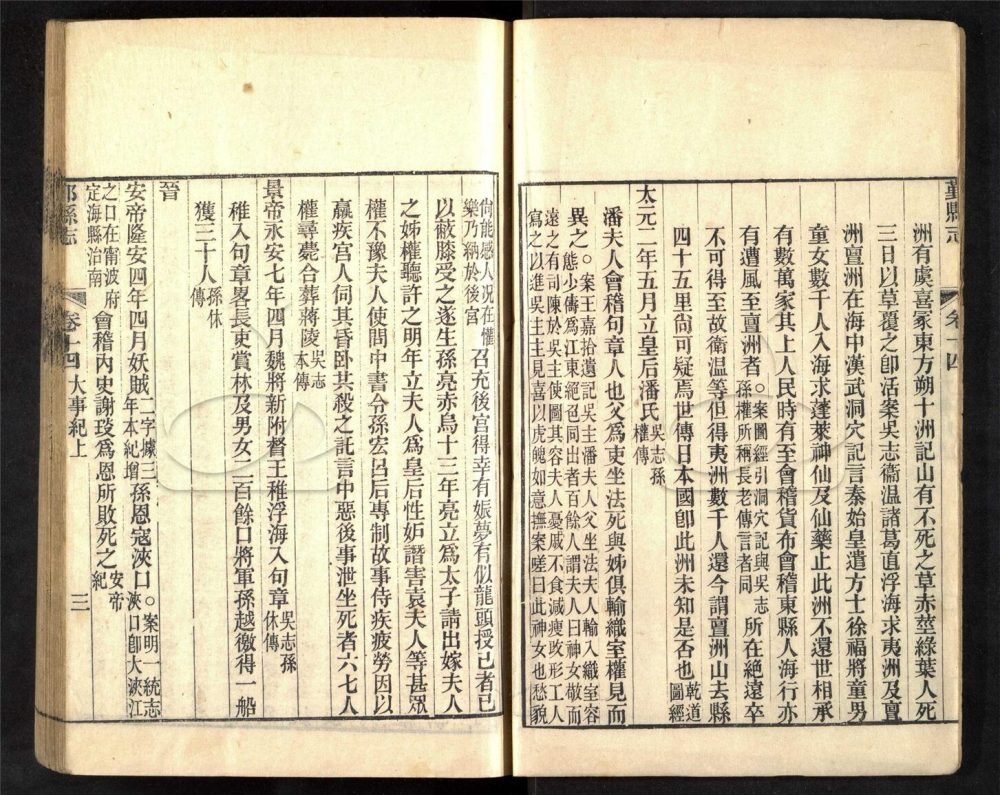 鄞縣志
卷十四
洲有虞喜冢東方朔十洲記山有不死之草赤莖綠葉人死
三日以草覆之卽活案吳志衞温諸葛直浮海求夷洲及亶
洲亶洲在海中漢武洞穴記言秦始皇遣方士徐福將童男
童女數千人入海求蓬萊神仙及仙藥止此洲不還世相承
有數萬家其上人民時有至會稽貨布會稽東縣人海行亦
有遭風至亶洲者○案圖經引洞穴記與吳志孫權所稱長老傳言者同所在絕遠卒
不可得至故衞温等但得夷洲數千人還今謂亶洲山去縣
四十五里尙可疑焉世傳日本國卽此洲未知是否也乾道圖經
太元二年五月立皇后潘氏吳志孫權傳
潘夫人會稽句章人也父爲吏坐法死與姊俱輸織室權見而
異之○案王嘉拾遺記吳主潘夫人父坐法夫人輸入織室容態少儔爲江東絕召同出者百餘人謂夫人曰神女敬而
遠之有司陳於吳主使圖其容夫人憂戚不食減瘦改形工人寫之以進吳主主見喜以虎魄如意撫案嗟曰此神女也愁貌
尙能感人况在懽樂乃納於後宮召充後宮得幸有娠夢有似龍頭授己者己
以蔽膝受之遂生孫亮赤烏十三年亮立爲太子請出嫁夫人
之姊權聽許之明年立夫人爲皇后性妒譖害袁夫人等甚眾
權不豫夫人使問中書令孫宏呂后專制故事侍疾疲勞因以
羸疾宮人伺其昏卧共殺之託言中惡後事泄坐死者六七人
權尋薨合葬蔣陵吳志本傳
景帝永安七年四月魏將新附督王稚浮海入句章吳志孫休傳
稚入句章畧長吏賞林及男女二百餘口將軍孫越徼得一船
獲三十人孫休傳
晉
安帝隆安四年四月妖賊二字據三年本紀增孫恩寇浹口○案明一統志浹口卽大浹江
之口在甯波府定海縣治南會稽內史謝琰爲恩所敗死之安帝紀
鄞縣志
卷十四
大事紀上
三